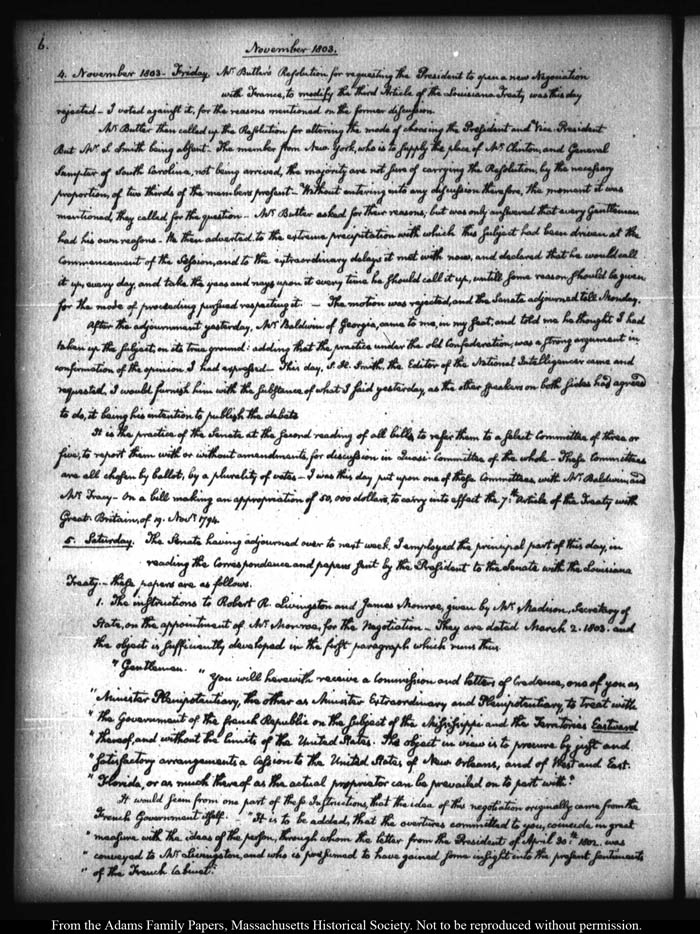 6.
November 1803.
4. November 1803 - Friday. Mr. Butler's Resolution for requesting the President to open a new Negociation
with France, to modify the third Article of the Louisiana Treaty was this day
rejected - I voted against it, for the reasons mentioned in the former discussion.
Mr. Butler then called up the Resolution for altering the mode of choosing the President and Vice-President
But Mr. S. Smith being absent. The member from New York, who is to supply the place of Mr. Clinton, and General
Sumpter of South Carolina, not being arrived, the majority are not sure of carrying the Resolution, by the necessary
proportion, of two thirds of the members present - Without entering into any discussion therefore, the moment it was
mentioned, they called for the question - Mr. Butler asked for their reasons, but was only answered that every Gentleman
had his own reasons - He then adverted to the extreme precipitation with which this subject had been driven at the
Commencement of the Session, and to the extraordinary delays it met with now, and declared that he would call
it up, every day, and take the yeas and nays upon it every time he should call it up, untill some reason should be given
for the mode of proceeding pursued respecting it. - The motion was rejected, and the Senate adjourned till Monday.
After the adjournment yesterday, Mr. Baldwin of Georgia, came to me, in my seat, and told me he thought I had
taken up the subject, on its true ground: adding that the practice under the old Confederation, was a strong argument in
confirmation of the opinion I had expressed - This day, S. H. Smith, the Editor of the National Intelligencer came and
requested, I would furnish him with the substance of what I said yesterday, as the other speakers on both sides had agreed
to do, it being his intention to publish the debate
It is the practice of the Senate at the second reading of all bills, to refer them to a select Committee of three or
five, to report them with or without amendments, for discussion in Quasi Committee of the whole - These Committees
are all chosen by ballot, by a plurality of votes - I was this day, put upon one of these Committees, with Mr. Baldwin, and
Mr. Tracy - On a bill making an appropriation of 50,000 dollars, to carry into effect the 7.th Article of the Treaty with
Great-Britain, of 19. Novr. 1794.
5. Saturday. The Senate having adjourned over to next week. I employed the principal part of this day, in
reading the Correspondence and papers sent by the President to the Senate with the Louisiana
Treaty - these papers are as follows.
1. The instructions to Robert R. Livingston and James Monroe, given by Mr. Madison, Secretary of
State, on the appointment of Mr. Monroe, for the Negotiation - They are dated March 2. 1803. and
the object is sufficiently developed in the first paragraph which runs thus.
"Gentlemen. "You will herewith receive a Commission and letters of Credence, one of you as
"Minister Plenipotentiary, the other as Minister Extraordinary and Plenipotentiary, to treat with
"the Government of the french Republic on the subject of the Mississippi and the Territories Eastward
"thereof, and without the limits of the United States. The object in view is to procure by just and
"satisfactory arrangements a Cession to the United States, of New Orleans, and of West and East
"Florida, or as much thereof as the actual proprietor can be prevailed on to part with."
It would seem from one part of these Instructions, that the idea of this negotiation originally came from the
French Government itself. "It is to be added, that the overtures committed to you, coincide in great
"measure with the ideas of the person, through whom the letter from the President of April 30.th 1802. was
"conveyed to Mr. Livingston, and who is presumed to have gained some insight into the present sentiments
"of the French Cabinet."
From the Adams Family Papers, Massachusetts Historical Society. Not to be reproduced without permission.